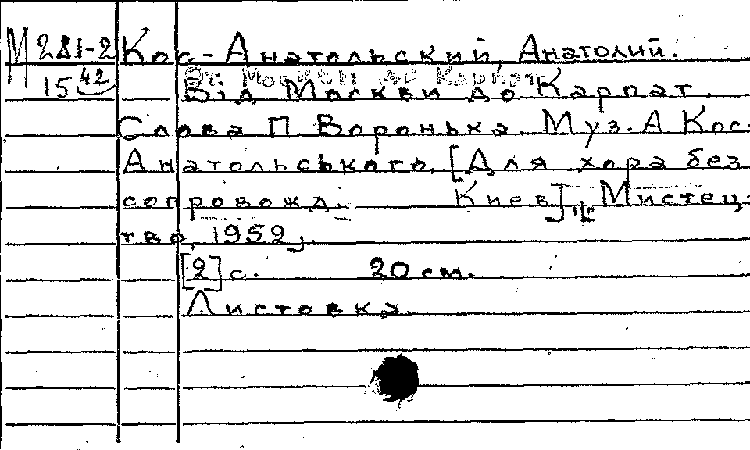 М 281-2 Кос-Анатольский, Анатолий.
15 42
Від Москви до Карпат.
Слова П Воронька. Муз. А Кос-
Анатольського. [Для хора без
сопровожд. Киев], Мистец-
тво, 1952.
[2] с. 20 см.
Листовка.